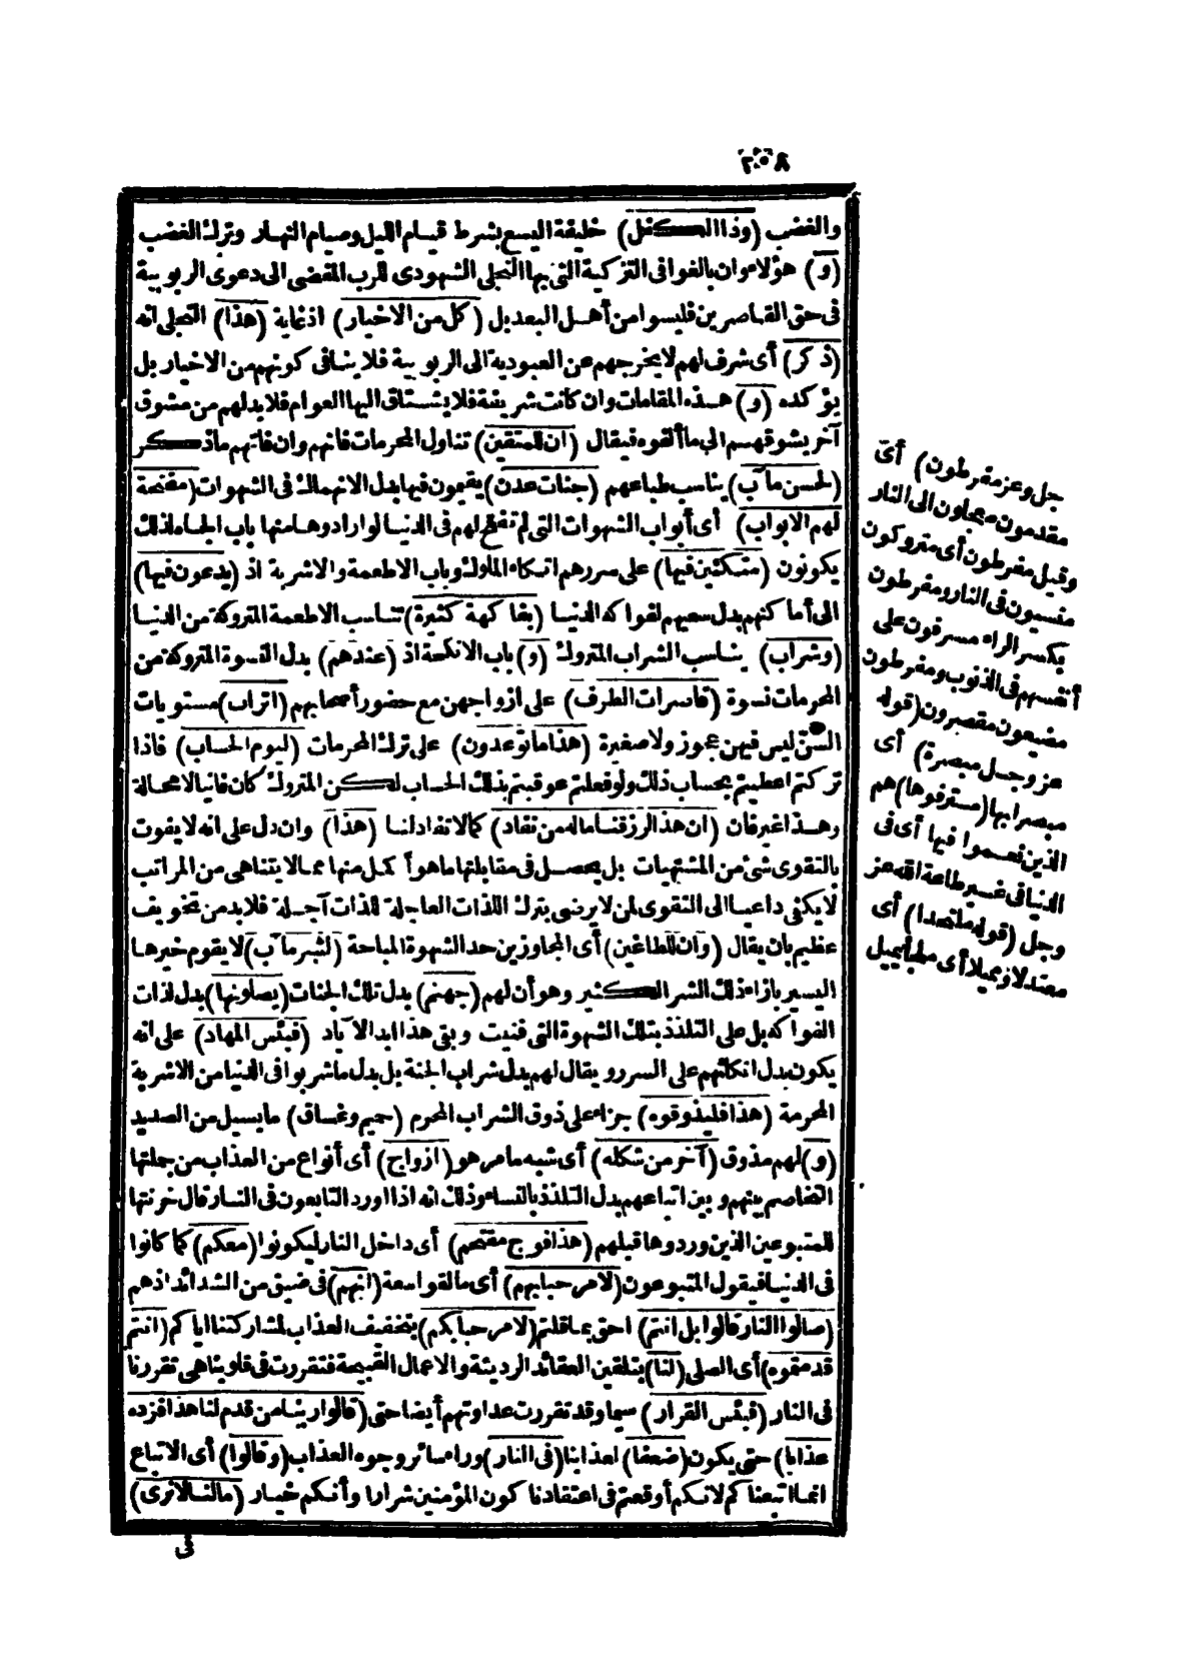 ٢٠٨
والغضب (وذا الكفل) خليفة اليسع بشرط قيام الليل وصيام النهار وترك الغضب
(و) هؤلاء وان بالغوا فى التزكية التى بها التجلى الشهودى للرب المقضى الى دعوى الربوبية
فى حق القاصرين فليسوا من أهل البعد بل (كل من الاخيار) اذ غاية (هذا) التجلى انه
(ذكر) أى شرف لهم لا يخرجهم عن العبودية الى الربوبية فلا ينافى كونهم من الاخيار بل
يؤكده (و) هذه المقامات وان كانت شريفة فلا يشتاق اليها العوام فلا بد لهم من مشوق
آخر يشوقهم الى ما ألفوه فيقال (ان للمتقين) تناول المحرمات فانهم وان فاتهم ما ذكر
(لحسن مآب) يناسب طباعهم (جنات عدن) يقيمون فيها بدل الانهماك فى الشهوات (مفتحة
لهم الابواب) أى أبواب الشهوات التى لم تفتح لهم فى الدنيا لو ارادوها منها باب الجاه لذلك
يكونون (متكئين فيها) على سررهم اتكاء الملوك وباب الاطعمة والاشربة اذ (يدعون فيها)
الى أما كنهم بدل سعيهم لفواكه الدنيا (بفاكهة كثيرة) تناسب الاطعمة المتروكة من الدنيا
(وشراب) يناسب الشراب المتروك (و) باب الانكحة اذ (عندهم) بدل النسوة المتروكة من
المحرمات نسوة (قاصرات الطرف) على ازواجهن مع حضور أصحابهم (اتراب) مستويات
السن ليس فيهن عجوز ولا صغيرة (هذا ما توعدون) على ترك المحرمات (ليوم الحساب) فاذا
تركتم اعطيتم بحساب ذلك ولو فعلتم عوقبتم بذلك الحساب لكن المتروك كان فانيا لا محالة
وهذا غير فان (ان هذا لرزقنا ماله من نفاد) كما لا نفاد لنا (هذا) وان دل على انه لا يفوت
بالتقوى شئ من المشتهيات بل يحصل فى مقابلتها ما هو أكمل منها مما لا يتناهى من المراتب
لا يكفى داعيا الى التقوى لمن لا يرضى بترك اللذات العاجلة للذات آجلة فلا بد من تخويف
عظيم بان يقال (وان للطاغين) أى المجاوزين حد الشهوة المباحة (لشر مآب) لا يقوم خيرها
اليسير بازاء ذلك الشر الكثير وهو أن لهم (جهنم) بدل تلك الجنات (يصلونها) بدل لذات
الفواكه بل على التلذذ بتلك الشهوة التى فنيت وبقى هذا ابد الآباد (فبئس المهاد) على انه
يكون بدل اتكائهم على السرر ويقال لهم بدل شراب الجنة بل بدل ما شربوا فى الدنيا من الاشربة
المحرمة (هذا فليذوقوه) جزاء على ذوق الشراب المحرم (حميم وغساق) ما يسيل من الصديد
(و) لهم مذوق (آخر من شكله) أى شبه ما مر هو (ازواج) أى أنواع من العذاب من جملتها
التخاصم بينهم وبين اتباعهم بدل التلذذ بالنساء وذلك انه اذا اورد التابعون فى النار قال خزنتها
للمتبوعين الذين وردوها قبلهم (هذا فوج مقتحم) أى داخل النار ليكونوا (معكم) كما كانوا
فى الدنيا فيقول المتبوعون (لا مرحبا بهم) أى ما لقوا سعة (انهم) فى ضيق من الشدائد اذ هم
(صالوا النار قالوا بل انتم) احق بما قلتم (لا مرحبا بكم) بتخفيف العذاب لمشاركتنا اياكم (انتم
قدمتموه) أى الصلى (لنا) بتلقين العقائد الرديئة والاعمال القبيحة فتقررت فى قلوبنا هى تقررنا
فى النار (فبئس القرار) سيما وقد تقررت عداوتهم أيضا حتى (قالوا ربنا من قدم لنا هذا فزده
عذابا) حتى يكون (ضعفا) لعذابنا (فى النار) وراء سائر وجوه العذاب (وقالوا) أى الاتباع
انما اتبعناكم لانكم أوقعتم فى اعتقادنا كون المؤمنين شرارا وأنكم خيار (ما لنا لا نرى)
فى
جل وعز مفرطون) أى
مقدمون معجلون الى النار
وقيل مفرطون أى متروكون
منسيون فى النار ومفرطون
بكسر الراء مسرفون على
أنفسهم فى الذنوب ومفرطون
مضيعون مقصرون (قوله
عز وجل مبصرة) أى
مبصرا بها (مسترفوها) هم
الذين نعموا فيها أى فى
الدنيا فى غير طاعة الله عز
وجل (قوله ملتحدا) أى
معتدلا ومميلا أى ملجأ يميل